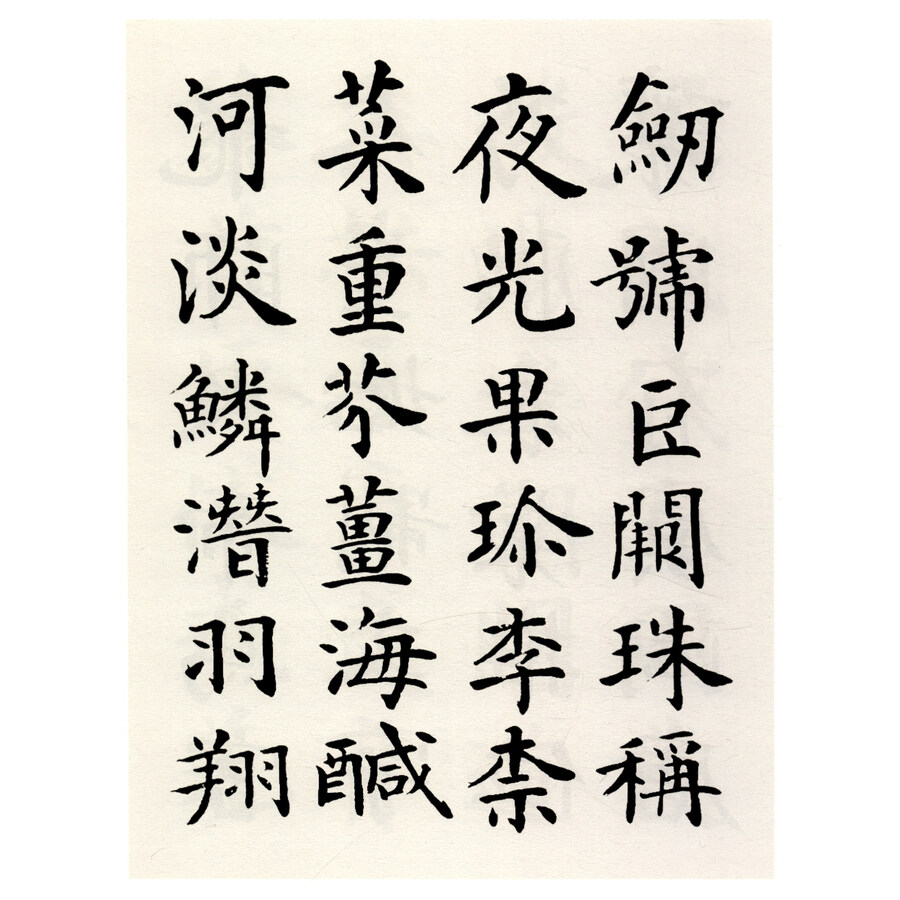 劒號巨闕珠稱
夜光果珎李柰
菜重芥薑海醎
河淡鱗潛羽翔